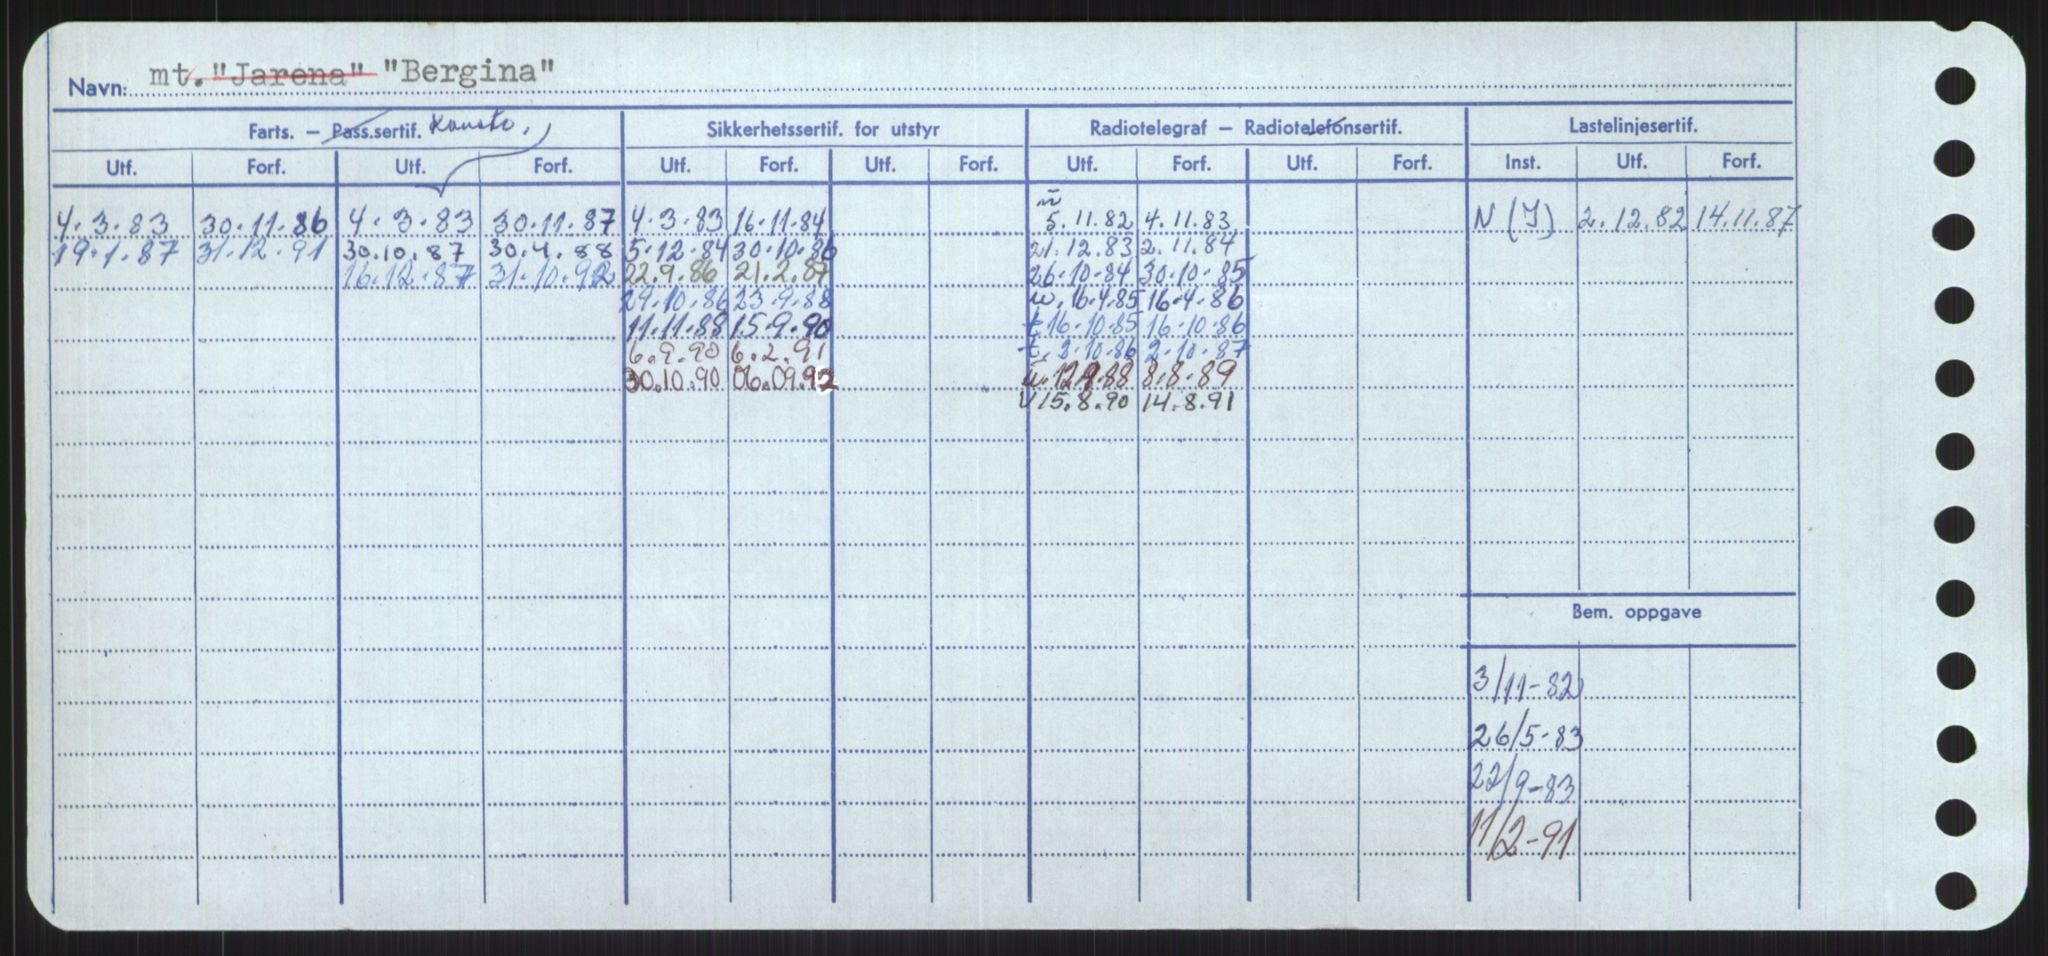 Navn: mt. "Jarena" "Bergina"
Farts. – Pass.sertif. Konstr. Sikkerhetssertif. for utstyr Radiotelegraf – Radiotelefonsertif. Lastelinjesertif.
Utf. Forf. Utf. Forf. Utf. Forf. Utf. Forf. Utf. Forf. Utf. Forf. Inst. Utf. Forf.
4.3.83 30.11.86 4.3.83 30.11.87 4.3.83 16.11.84 5.11.82 4.11.83 N (I) 2.12.82 14.11.87
19.1.87 31.12.91 30.10.87 30.4.88 5.12.84 30.10.86 21.12.83 2.11.84
16.12.87 31.10.92 22.9.86 21.2.87 26.10.84 30.10.85
29.10.86 23.9.88 u. 16.4.85 16.4.86
11.11.88 15.9.90 t 16.10.85 16.10.86
6.9.90 6.2.91 t. 2.10.86 2.10.87
30.10.90 06.09.92 u. 8.88 8.8.89
U 15.8.90 14.8.91
Bem. oppgave
3/11-82
26/5-83
22/9-83
11/2-91